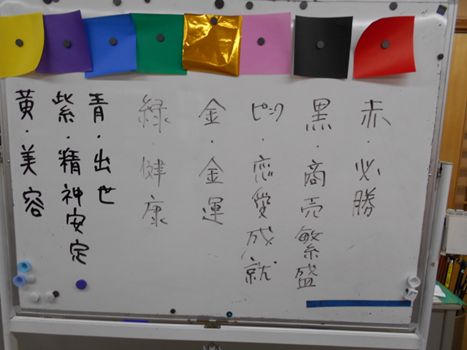 赤・必勝
黒・商売繁盛
ピンク・恋愛成就
金・金運
緑・健康
青・出世
紫・精神安定
黄・美容